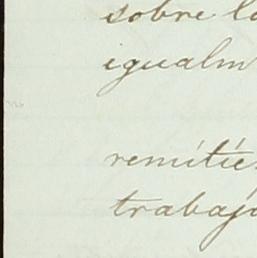 sobre l
igualm
remitié
trabaj